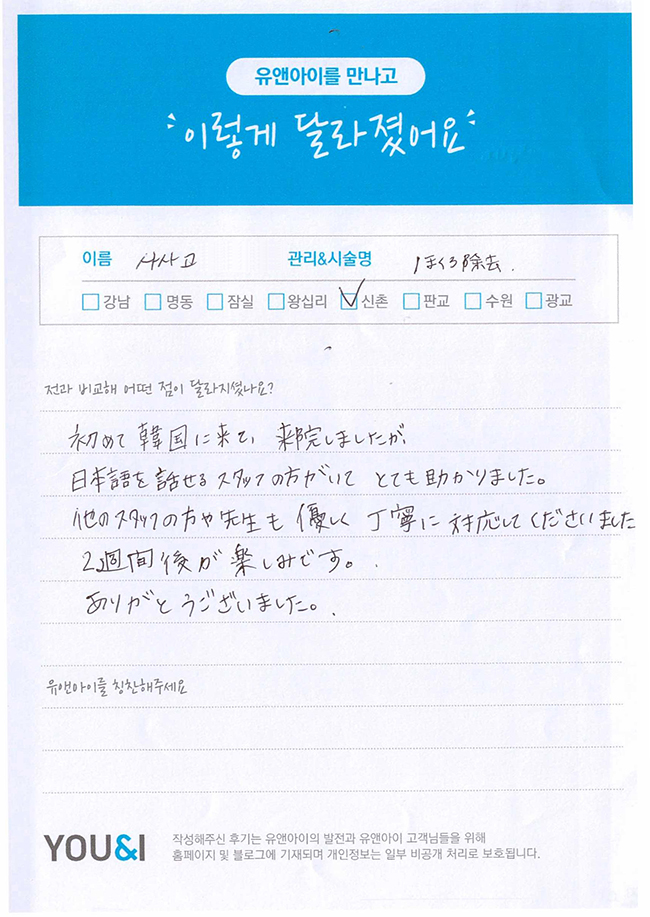 유앤아이를 만나고
이렇게 달라졌어요
이름 사사고 관리&시술명 ほくろ除去.
강남 명동 잠실 왕십리 신촌 판교 수원 광교
전과 비교해 어떤 점이 달라지셨나요?
初めて韓国に来て、来院しましたが、
日本語を話せるスタッフの方がいて とても助かりました。
他のスタッフの方や先生も 優しく 丁寧に 対応してくださいました
2週間後が楽しみです。
ありがとうございました。
유앤아이를 칭찬해주세요
YOU&I
작성해주신 후기는 유앤아이의 발전과 유앤아이 고객님들을 위해
홈페이지 및 블로그에 기재되며 개인정보는 일부 비공개 처리로 보호됩니다.